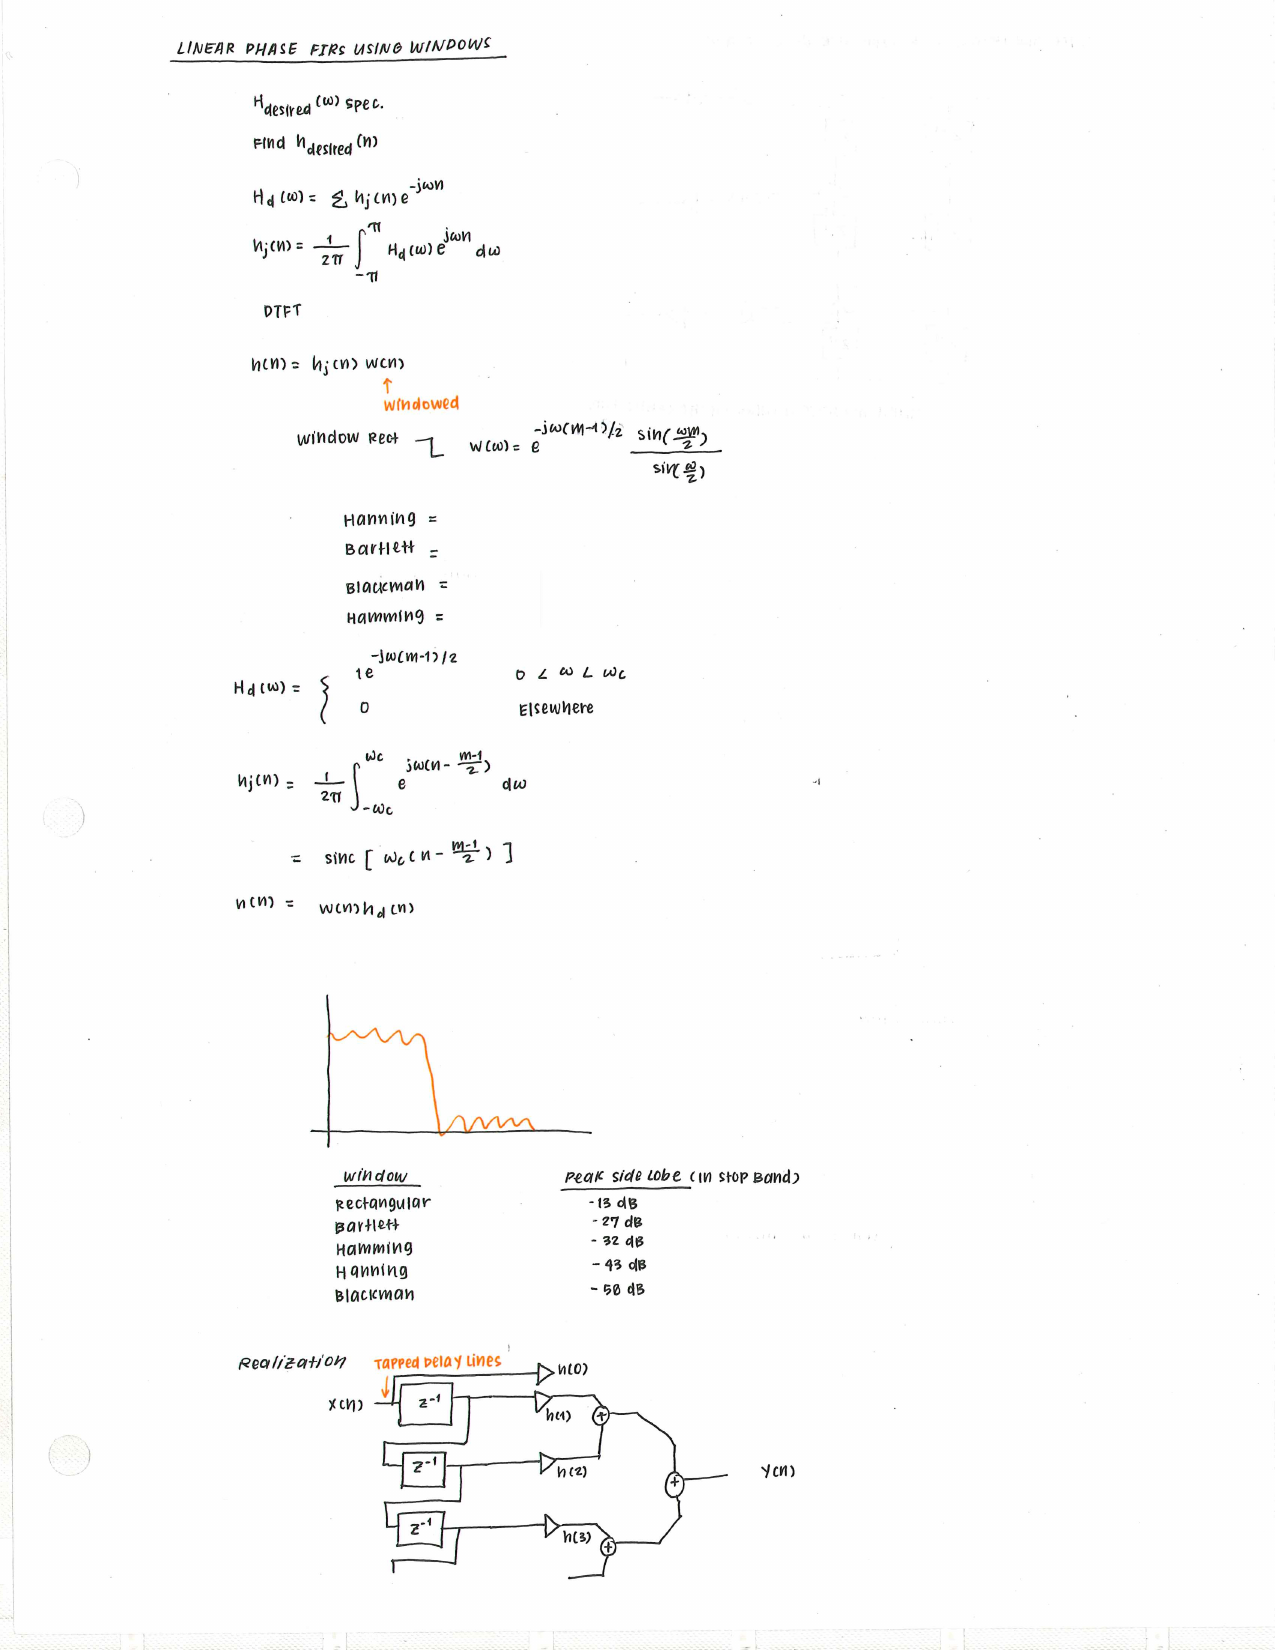 LINEAR PHASE FIRs USING WINDOWS
H_desired (ω) spec.
Find h_desired (n)
H_d (ω) = Σ h_j(n) e^-jωn
h_j(n) = 1/2π ∫_-π^π H_d (ω) e^jωn dω
DTFT
h(n) = h_j(n) w(n)
↑
windowed
window Rect W(ω) = e^-jω(M-1)/2 sin(ωm/2) / sin(ω/2)
Hanning =
Bartlett =
Blackman =
Hamming =
H_d (ω) = { 1e^-jω(M-1)/2 0 < ω < ωc
0 Elsewhere
h_j(n) = 1/2π ∫_-ωc^ωc e^jω(n - m-1/2) dω
= sinc [ ωc (n - m-1/2) ]
h(n) = w(n) h_d (n)
window Peak side Lobe (in stop Band)
Rectangular -13 dB
Bartlett -27 dB
Hamming -32 dB
Hanning -43 dB
Blackman -58 dB
Realization Tapped Delay Lines h(0)
x(n) z^-1 h(1) +
z^-1 h(2) + y(n)
z^-1 h(3) +